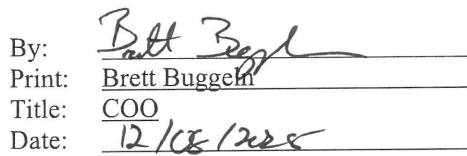 By: Brett Buggeln
Print: Brett Buggeln
Title: COO
Date: 12/08/2025